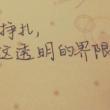 挣扎，
这透明的界限